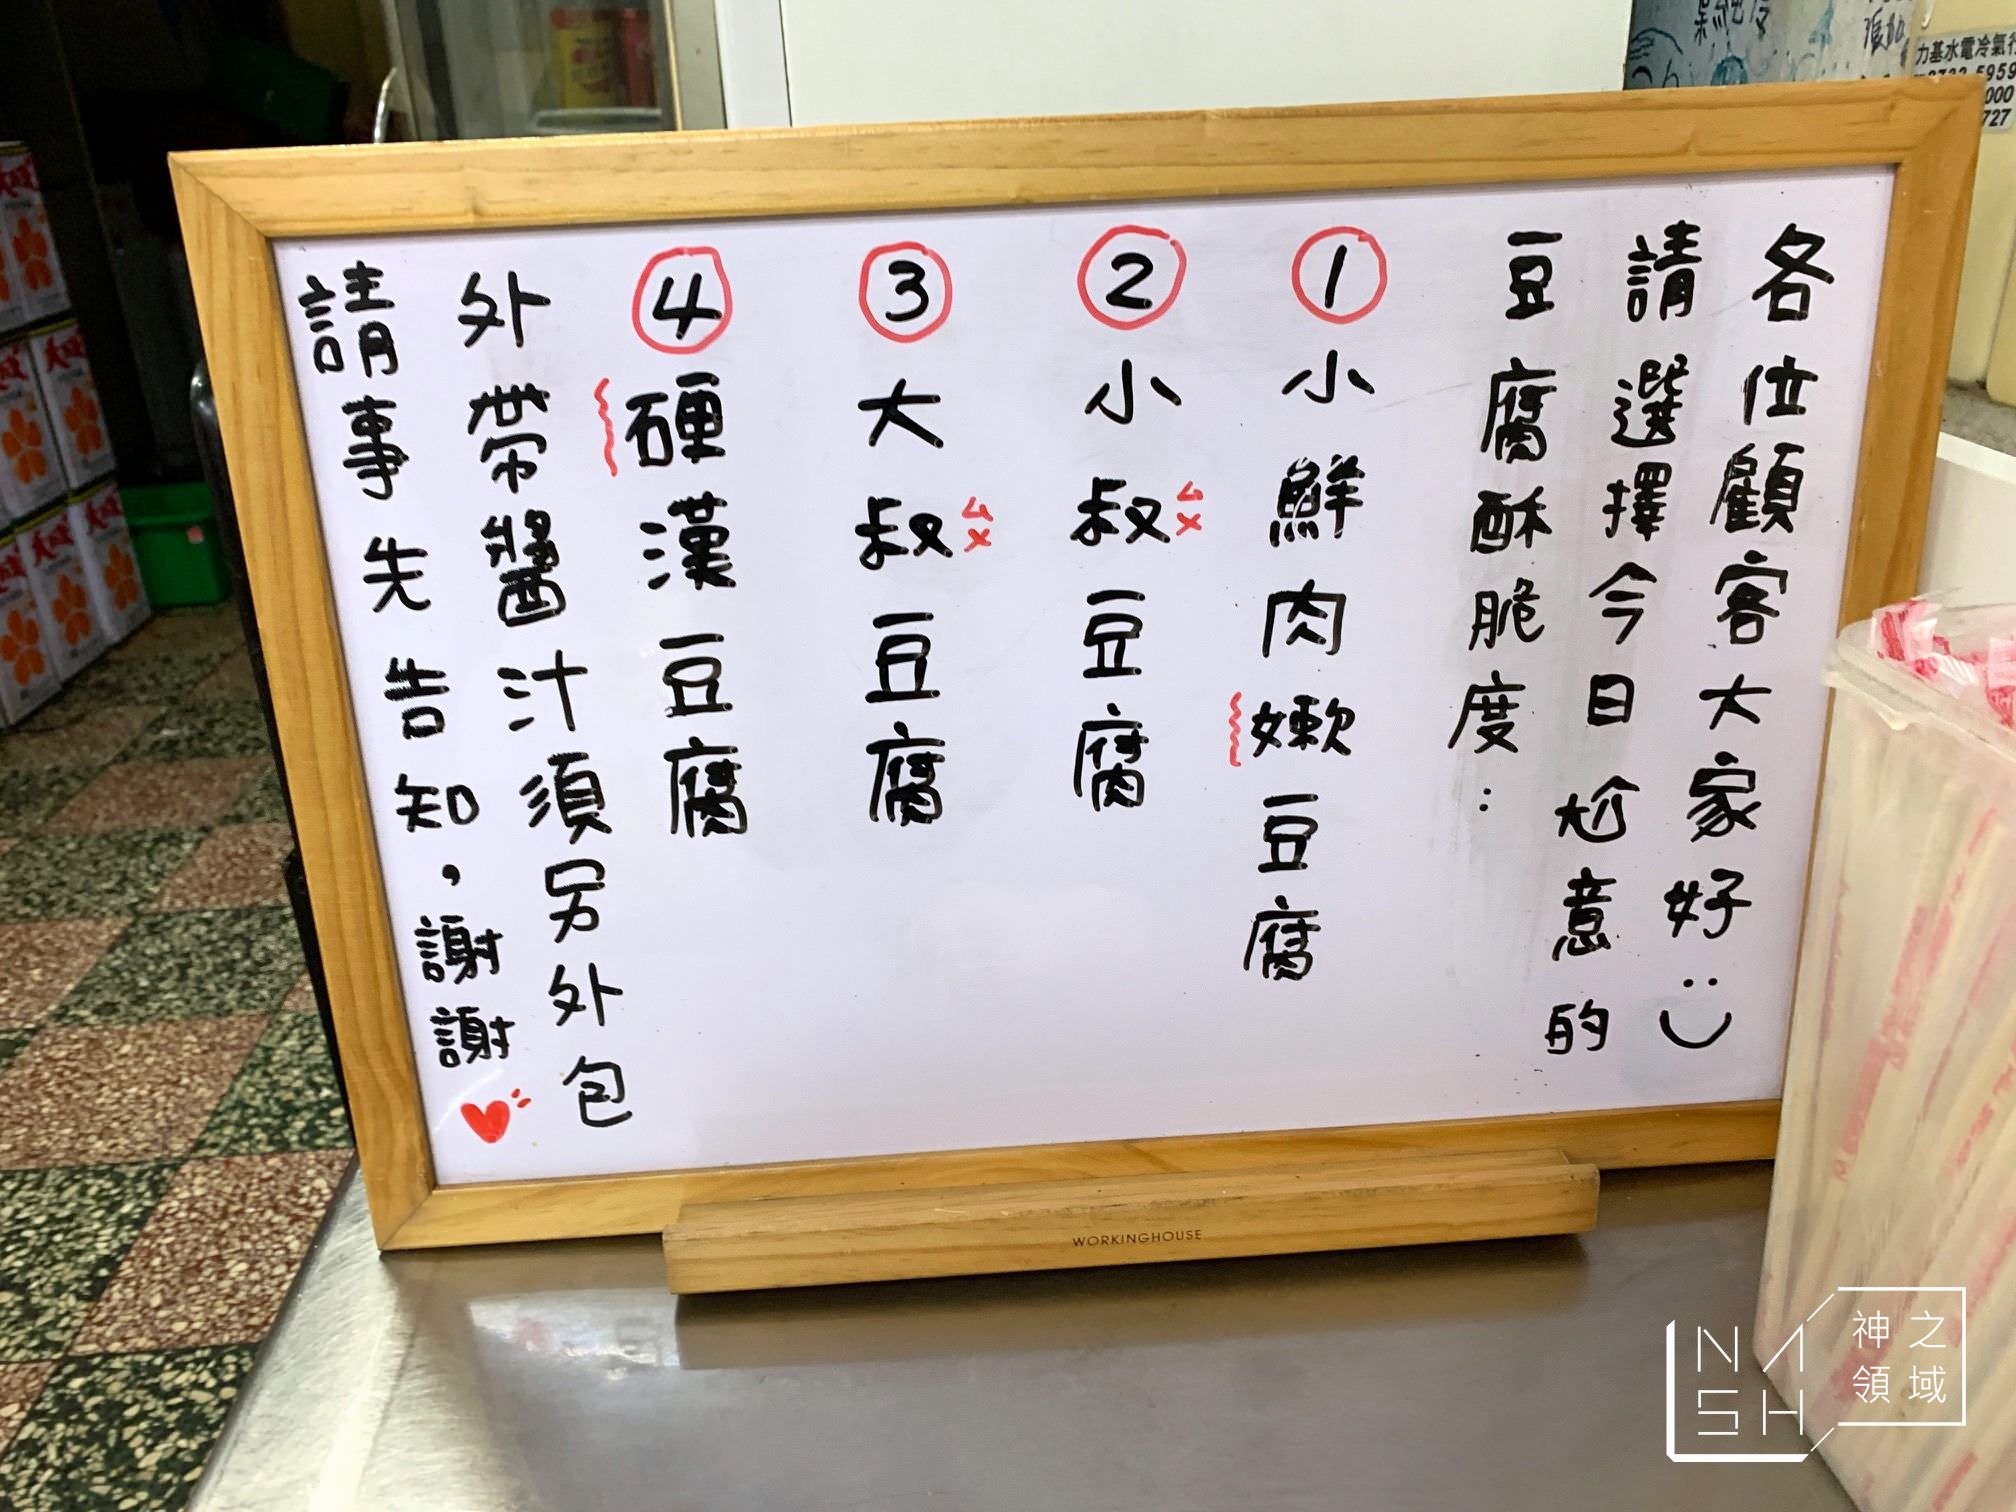 各位顧客大家好:)
請選擇今日尬意的
豆腐酥脆度:
① 小鮮肉嫩豆腐
② 小叔ㄙㄨ豆腐
③ 大叔ㄙㄨ豆腐
④ 硬漢豆腐
外帶醬汁須另外包
請事先告知，謝謝
WORKINGHOUSE
力基水電冷氣行
NASH
神之
領域